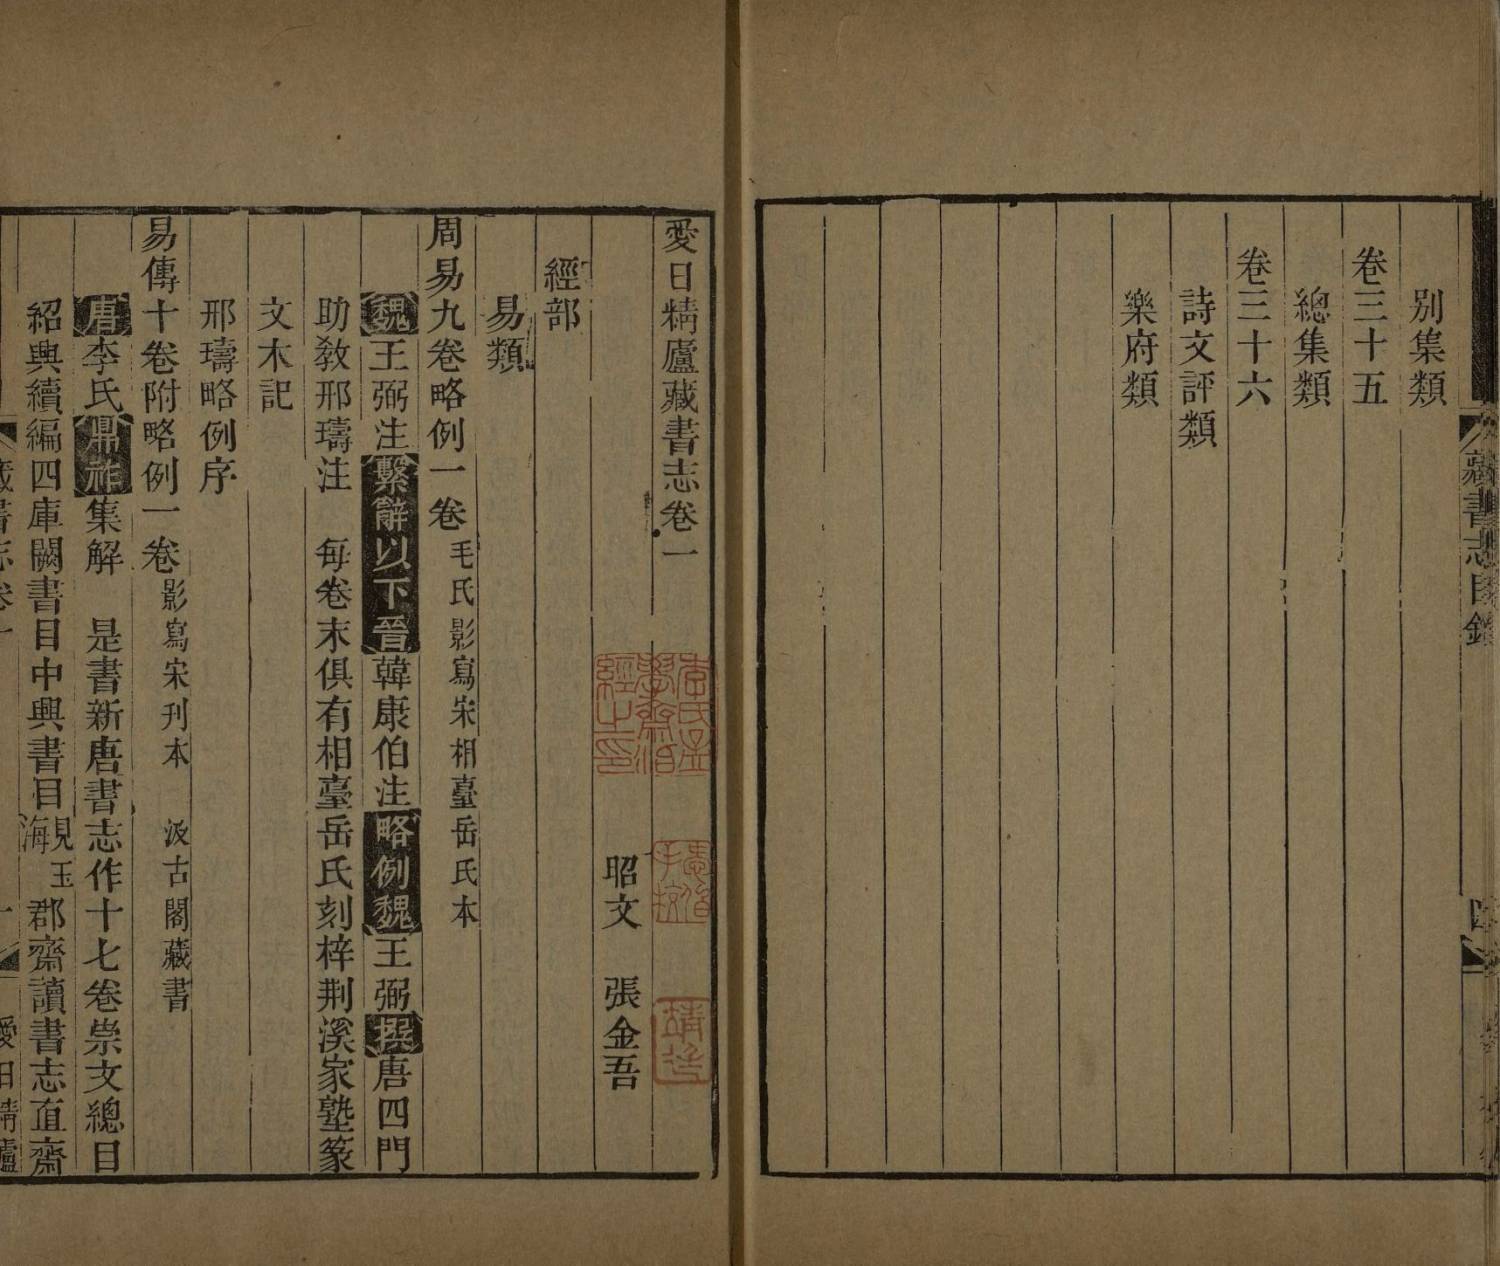 別集類
卷三十五
總集類
卷三十六
詩文評類
樂府類
愛日精廬藏書志卷一
昭文 張金吾
經部
易類
周易九卷略例一卷 毛氏影寫宋相臺岳氏本
魏王弼注繫辭以下晉韓康伯注略例魏王弼撰唐四門
助敎邢璹注 每卷末俱有相臺岳氏刻梓荆溪家塾篆
文木記
邢璹略例序
易傳十卷附略例一卷 影寫宋刊本 汲古閣藏書
唐李氏鼎祚集解 是書新唐書志作十七卷崇文總目
紹興續編四庫闕書目中興書目見玉海郡齋讀書志直齋